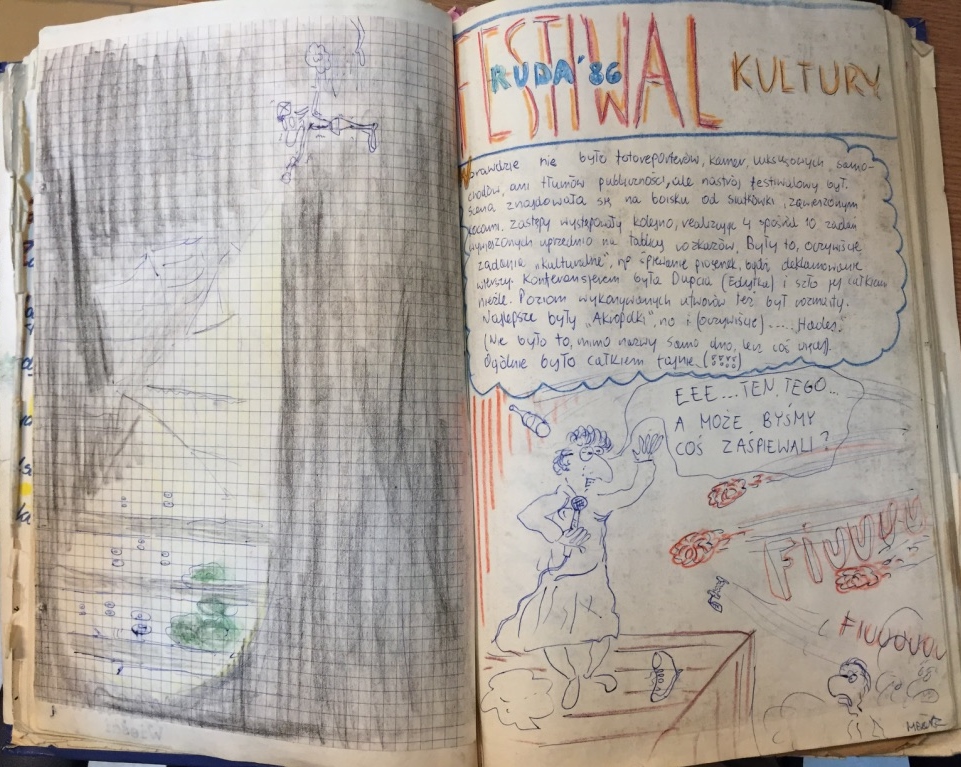 FESTIWAL
RUDA '86
KULTURY
Wprawdzie nie było fotoreporterów, kamer, luksusowych samo-
chodów, ani tłumów publiczności, ale nastrój festiwalowy był.
Scena znajdowała się na boisku od siatkówki, zawieszonym
kocami. Zastępy występowały kolejno, realizując 4 spośród 10 zadań
wywieszonych uprzednio na tablicy rozkazów. Były to, oczywiście
zadania „kulturalne", np śpiewanie piosenek, bądź deklamowanie
wierszy. Konferansjerem była Dupcia (Edytka) i szło jej całkiem
nieźle. Poziom wykonywanych utworów też był rozmaity.
Najlepsze były „Akiopałki", no i (oczywiście).... Hades.
(Nie było to, mimo nazwy samo dno, lecz coś więcej).
Ogólnie było całkiem fajnie.
EEE...TEN, TEGO...
A MOŻE BYŚMY
COŚ ZAŚPIEWALI?
FIUUUU
FIUUUUU